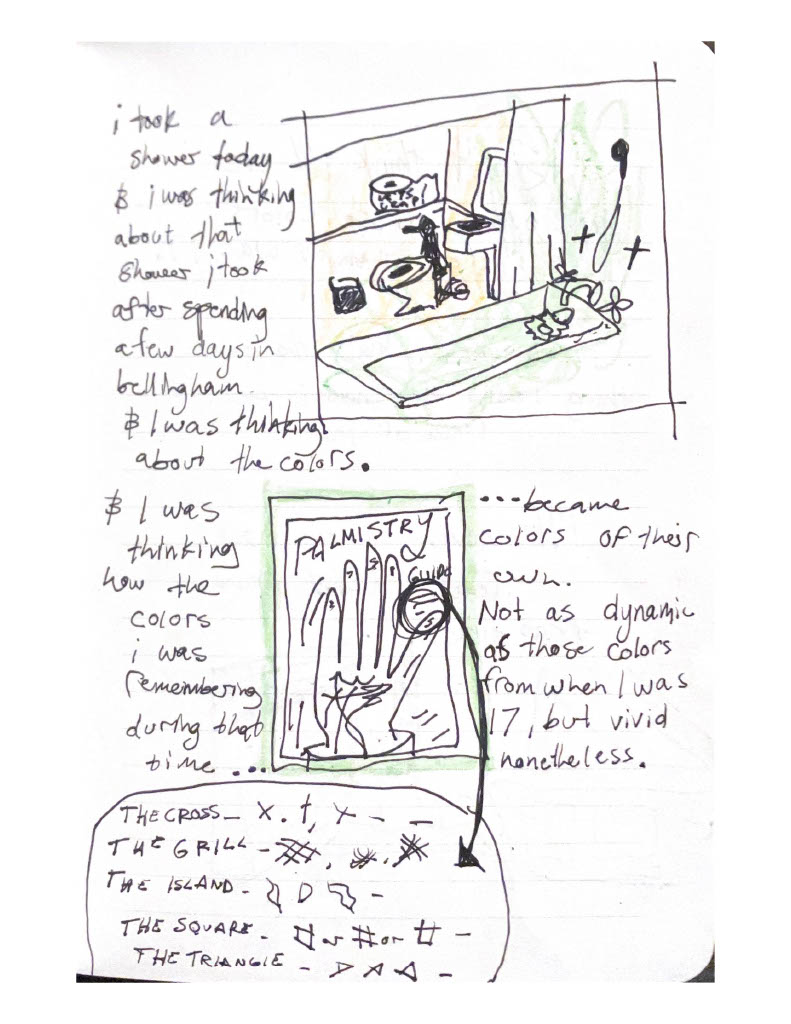 i took a
shower today
& i was thinking
about that
shower i took
after spending
a few days in
bellingham.
& I was thinking
about the colors.
& I was
thinking
how the
colors
i was
remembering
during that
time ...
PALMISTRY
GUIDE
...became
colors of their
own.
Not as dynamic
as those colors
from when I was
17, but vivid
nonetheless.
THE CROSS –
THE GRILL –
THE ISLAND –
THE SQUARE – or # or
THE TRIANGLE –